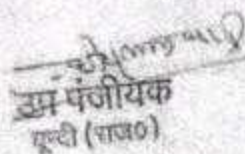 उप पंजीयक
बून्दी (राज०)